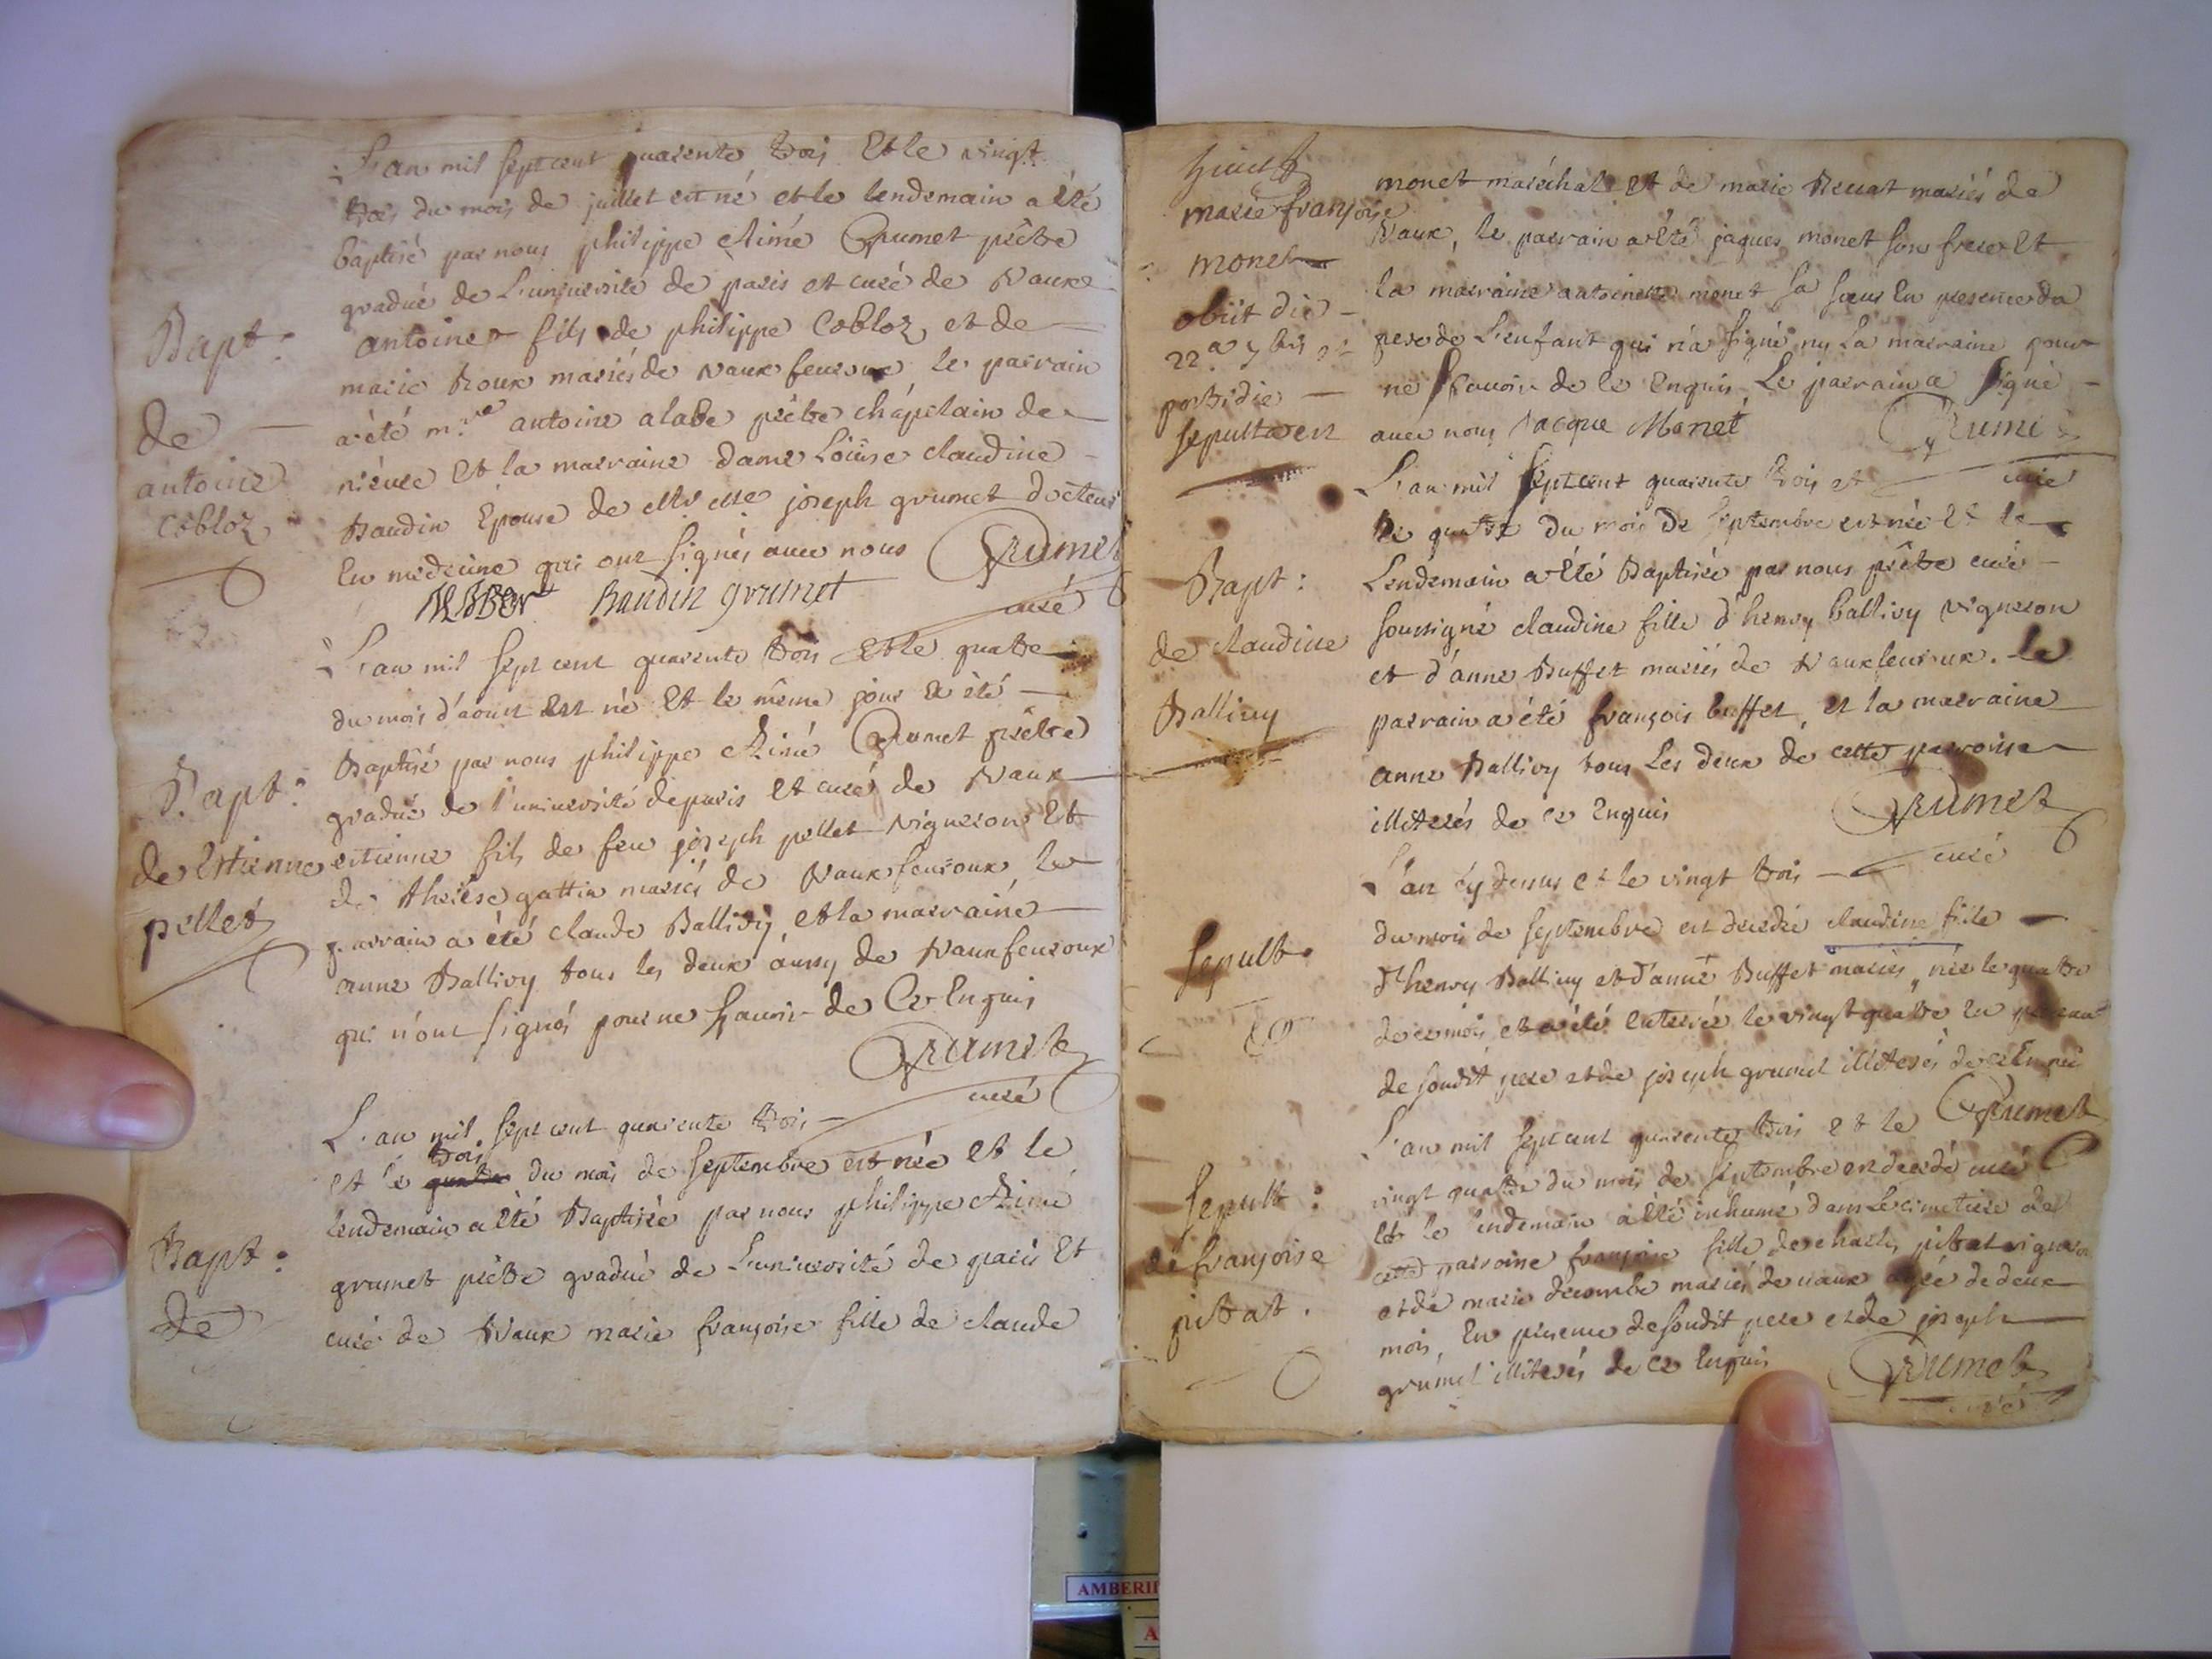 L'an mil sept cent quarente trois et le vingt
trois du mois de juillet est né et le lendemain a été
baptisé par nous philippe Aimé Grumet prêtre
gradué de L'université de paris et curé de Vaux
Bapt:
de
antoine
Cobloz
antoine fils de philippe Cobloz et de
marie Roux mariés de vaux feuroux le parrain
a été mre antoine alabe prêtre chapelain de
nieuce et la marraine dame Loüise claudine
Baudin Epouse de joseph grumet docteur
En medecine qui ont signés avec nous Grumet
Baudin grumet curé
L'an mil sept cent quarente trois et le quatre
du mois d'aoust Est né Et le même jour a été
Baptisé par nous philippe Aimé Grumet prêtre
gradué de l'université de paris Et curé de Vaux
Bapt:
de Estienne
pellet
estienne fils de feu joseph pellet vigneron Et
de thérèse gattin mariés de Vaux feuroux le
parrain a été claude Ballivy et la marraine
anne Ballivy tous les deux aussy de Vaux feuroux
qui n'ont signés pour ne sçavoir de Ce Enquis
Grumet
curé
L'an mil sept cent quarente trois
trois
et le quatre du mois de septembre est née et le
lendemain a été Baptisée par nous philippe Aimé
Bapt:
de
grumet prêtre gradué de L'université de paris Et
curé de Vaux marie françoise fille de claude
marie françoise
monet
obiit die
22a 7bris et
postridie
sepulta est
monet maréchal et de marie Revat mariés de
Vaux, le parrain a été jaques monet son frere Et
la marraine antoinette monet sa sœur En presence du
pere de L'enfant qui n'a signé ny La marraine pour
ne sçavoir de ce Enquis, Le parrain a signé
avec nous Jacque Monet Grumet
curé
L'an mil sept cent quarente trois et
le quatre du mois de septembre est née et le
Bapt:
de claudine
Ballivy
Lendemain a été Baptisée par nous prêtre curé
soussigné claudine fille d'henry ballivy vigneron
et d'anne Buffet mariés de Vaux feuroux. le
parrain a été françois buffet, et la marraine
anne Ballivy tous Les deux de cette parroisse
illiterés de ce Enquis Grumet
curé
L'an cy dessus et le vingt trois
Sepult.
du mois de septembre est decedée claudine fille
d'henry Ballivy et d'anne Buffet mariés, née le quatre
de ce mois, et a été enterrée le vingt quatre en presence
de soudit pere et de joseph grumel illiterés de ce Enquis
Grumet
curé
L'an mil sept cent quarente trois et le
Sepult:
de françoise
pittat.
vingt quatre du mois de septembre est decedé
et le lendemain a été inhumé dans Le cimetiere de
cette parroisse françoise fille de charles pittat vigneron
et de marie decombe mariés de vaux agée de deux
mois, En presence de soudit pere et de joseph
grumel illiterés de ce Enquis Grumet
curé
AMBERI
A